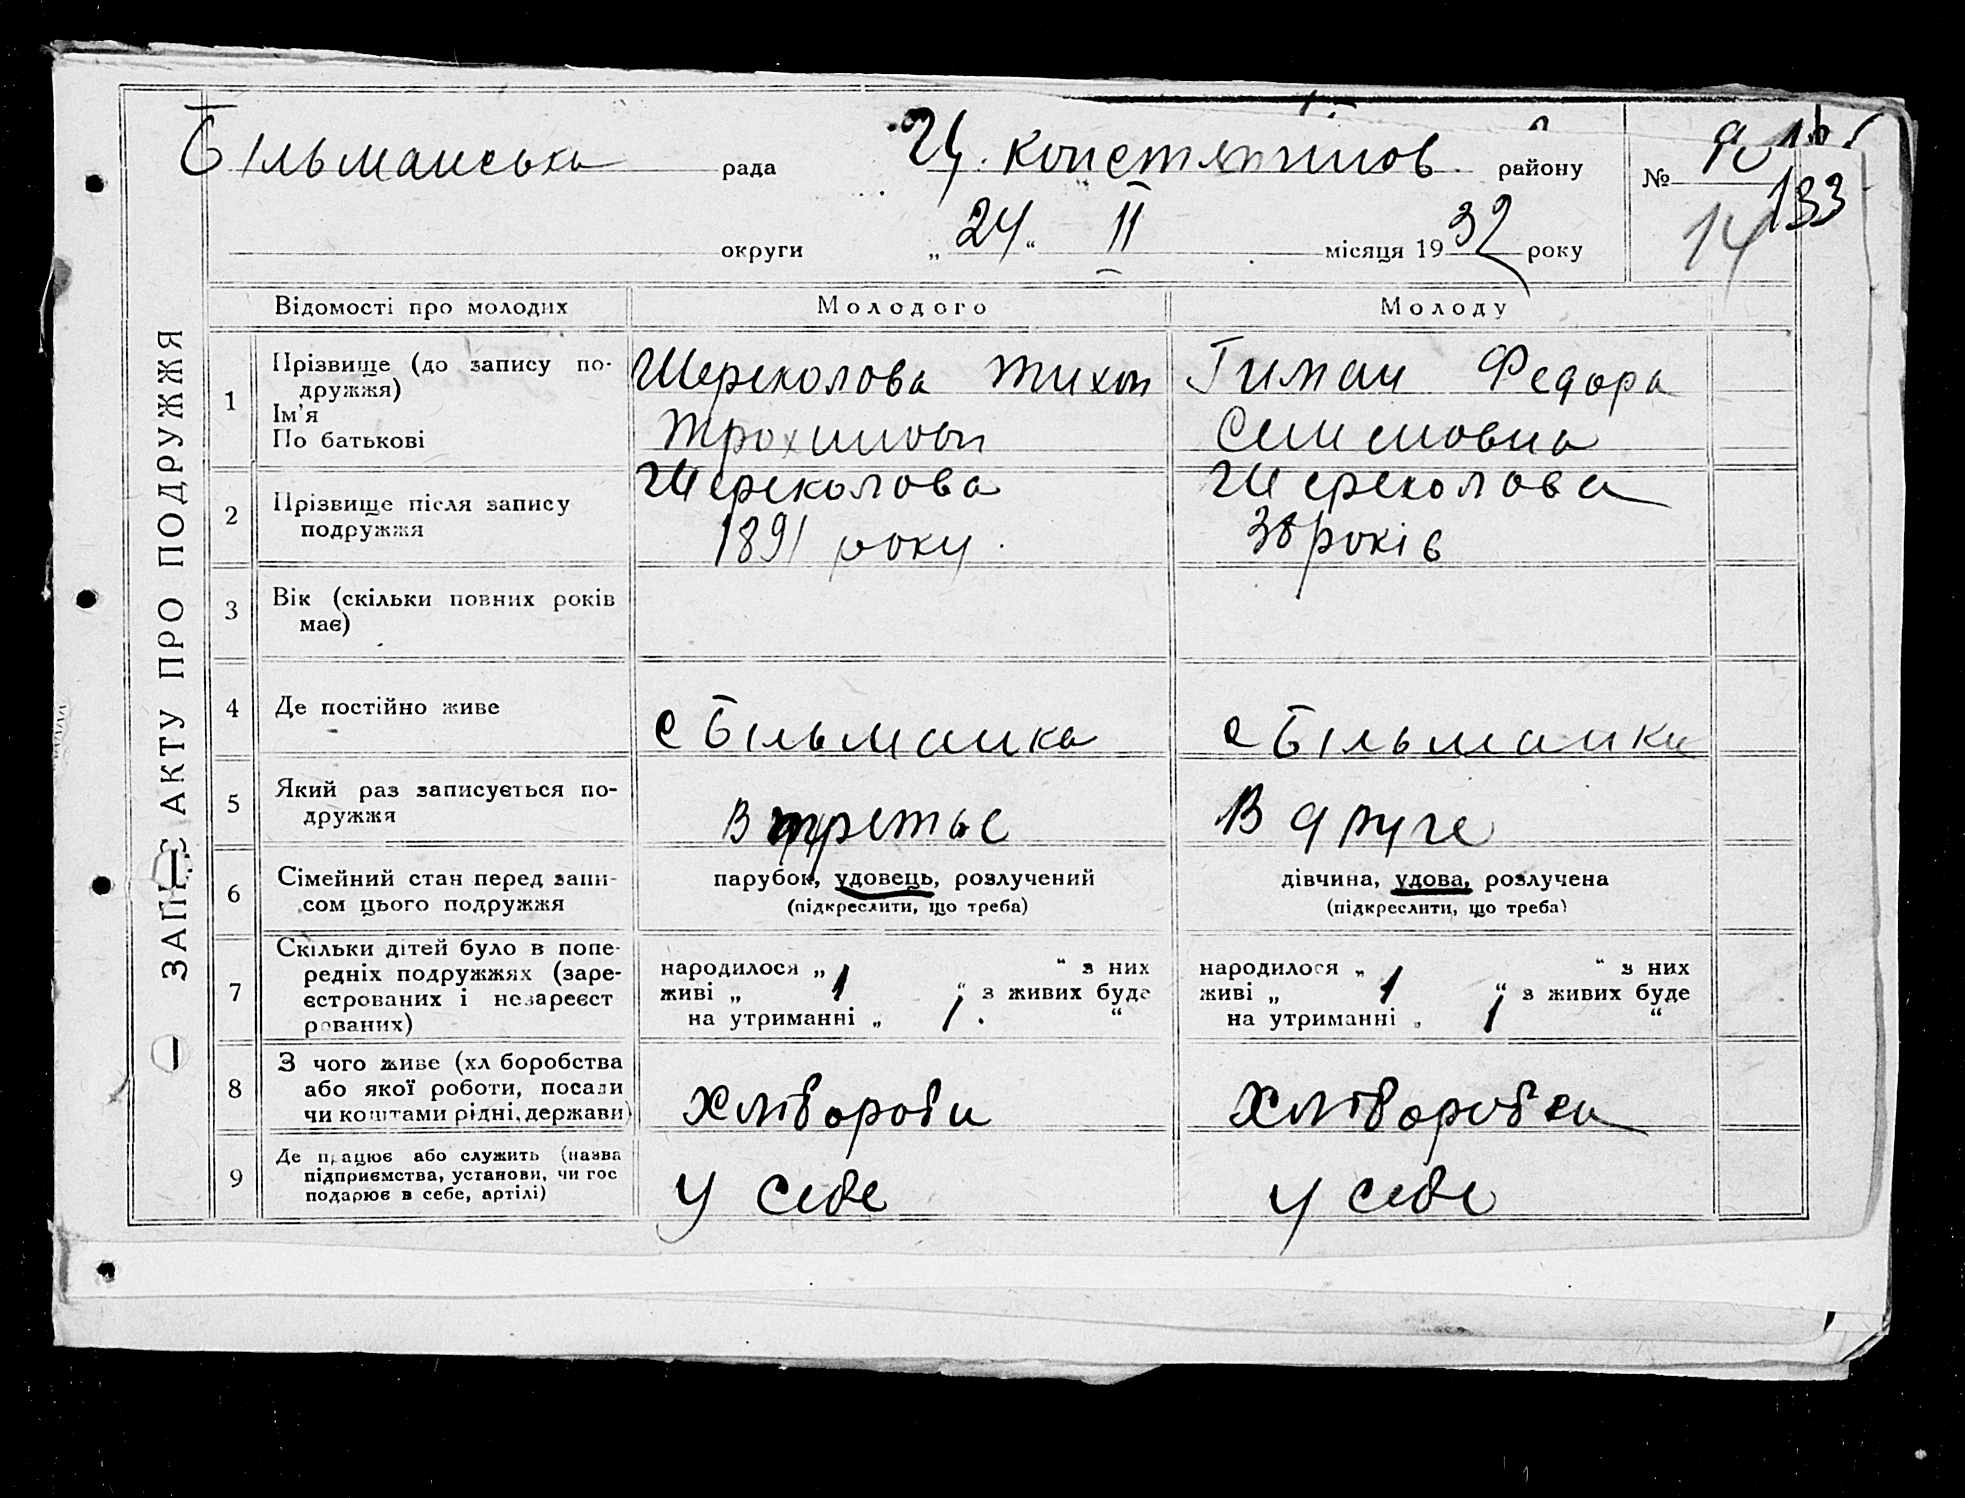 Більманська рада Ц. Констянтинов району № 90
133
округи „24“ II місяця 1932 року 14
ЗАПИС АКТУ ПРО ПОДРУЖЖЯ
Відомості про молодих Молодого Молоду
1 Прізвище (до запису по-
дружжя)
Ім'я
По батькові
Шереколова Тихон
Трохимов
Гиман Федора
Семеновна
2 Прізвище після запису
подружжя
Шереколова
1891 року
Шереколова
38 років
3 Вік (скільки повних років
має)
4 Де постійно живе с Більманка с Більманка
5 Який раз записується по-
дружжя
В третьє В друге
6 Сімейний стан перед запи-
сом цього подружжя
парубок, удовець, розлучений
(підкреслити, що треба)
дівчина, удова, розлучена
(підкреслити, що треба)
7 Скільки дітей було в попе-
редніх подружжях (заре-
єстрованих і незареєст
рованих)
народилося „ “ з них
живі „ 1 “ з живих буде
на утриманні „ 1. “
народилося „ “ з них
живі „ 1 “ з живих буде
на утриманні „ 1 “
8 З чого живе (хл боробства
або якої роботи, посади
чи коштами рідні, держави)
хлібороби хліборобка
9 Де працює або служить (назва
підприємства, установи, чи гос
подарює в себе, артілі)
у себе у себе